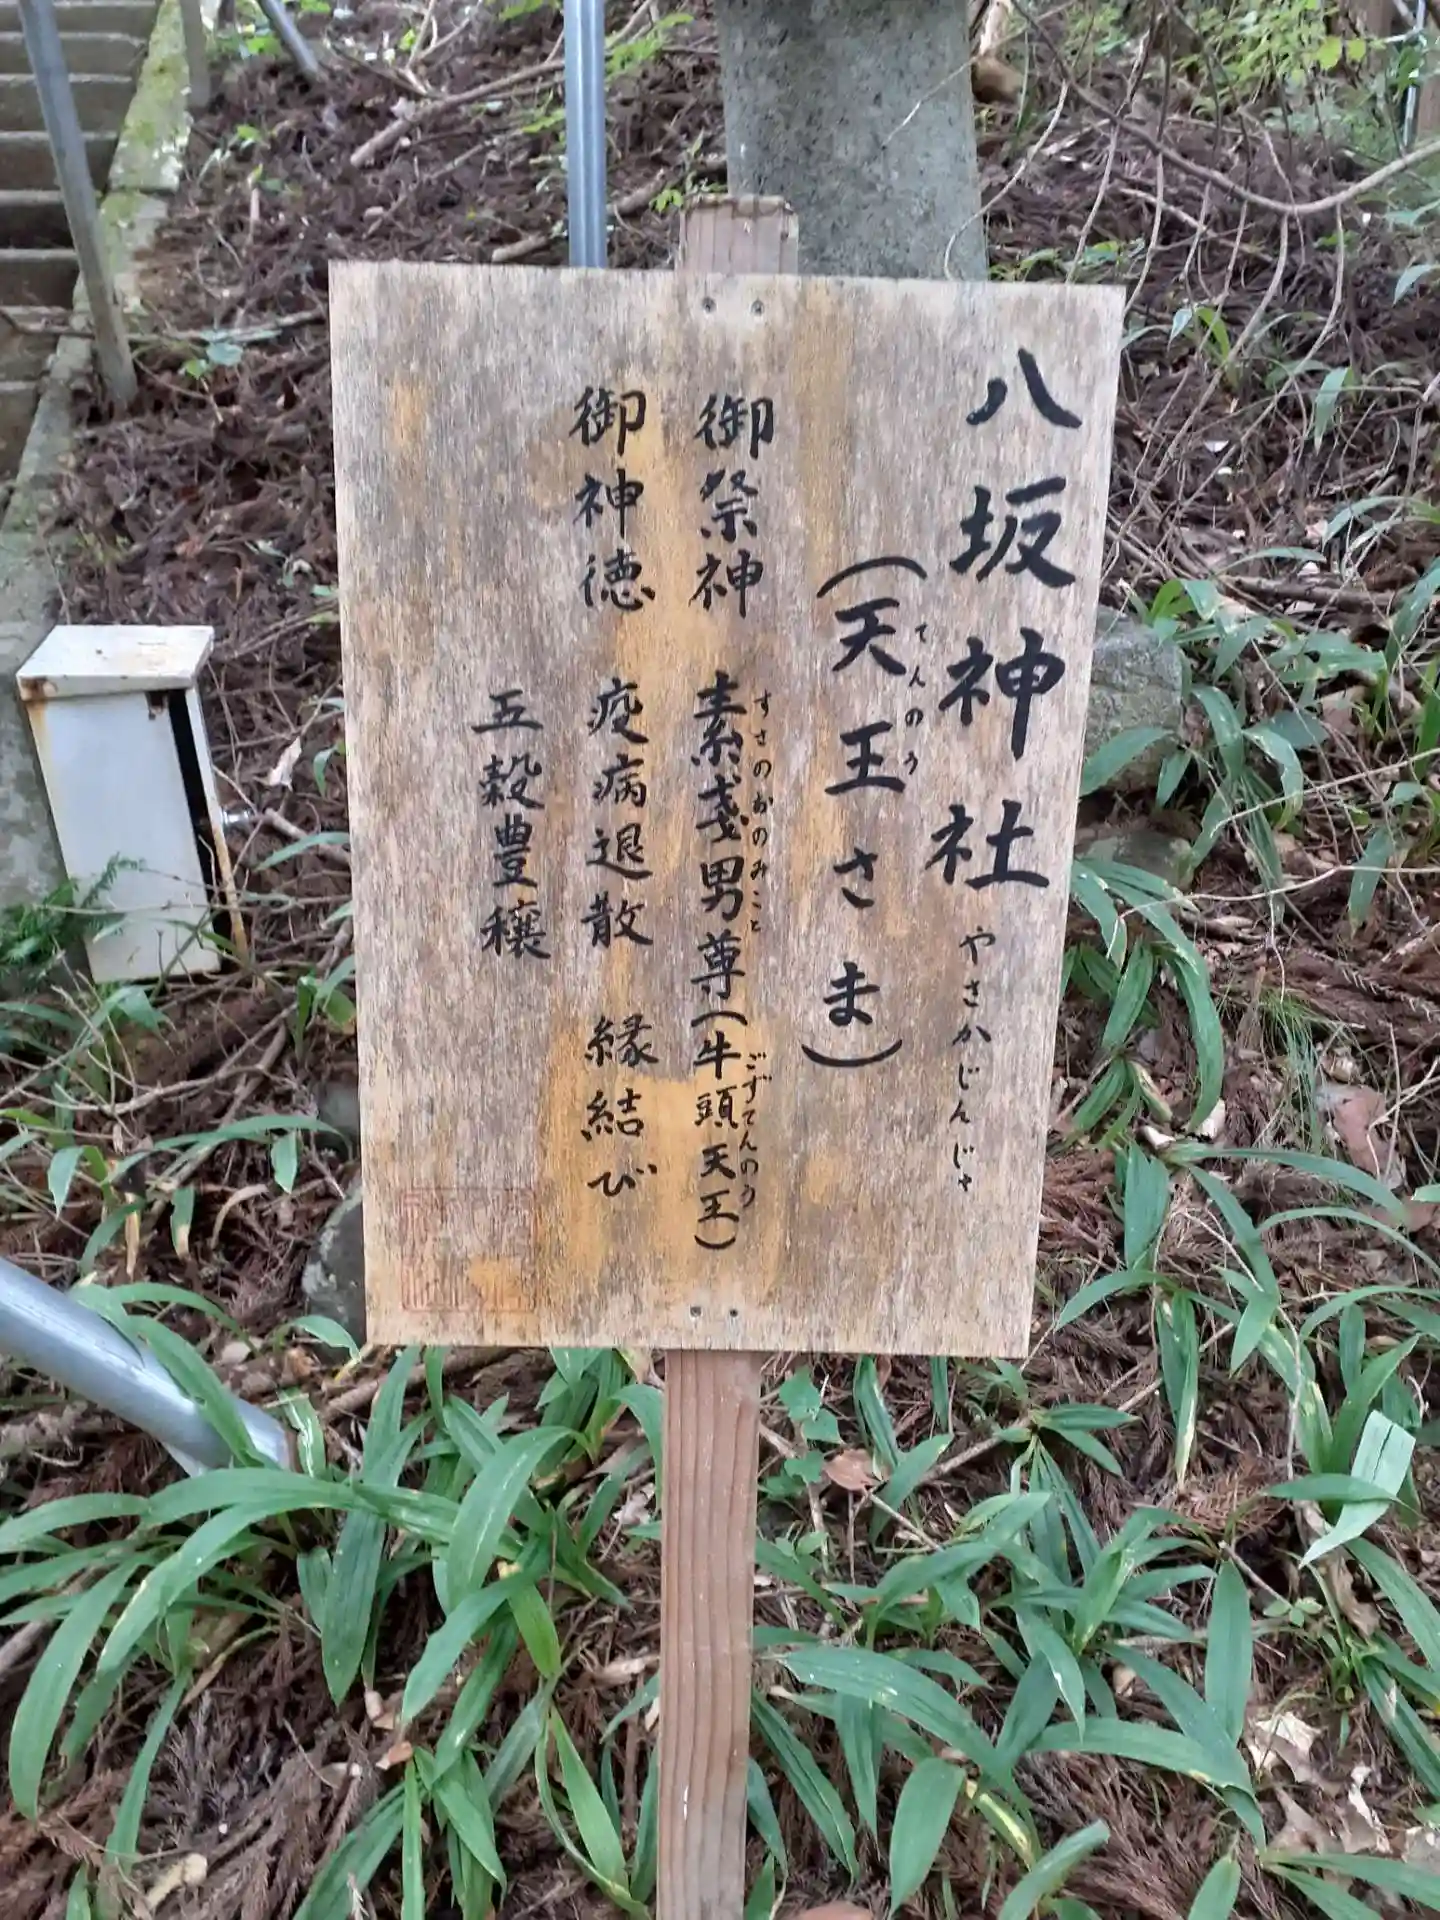 八坂神社 やさかじんじゃ
(天王さま)
てんのう
御祭神 素戔男尊(牛頭天王)
すさのおのみこと ごずてんのう
御神徳 疫病退散 縁結び
五穀豊穣